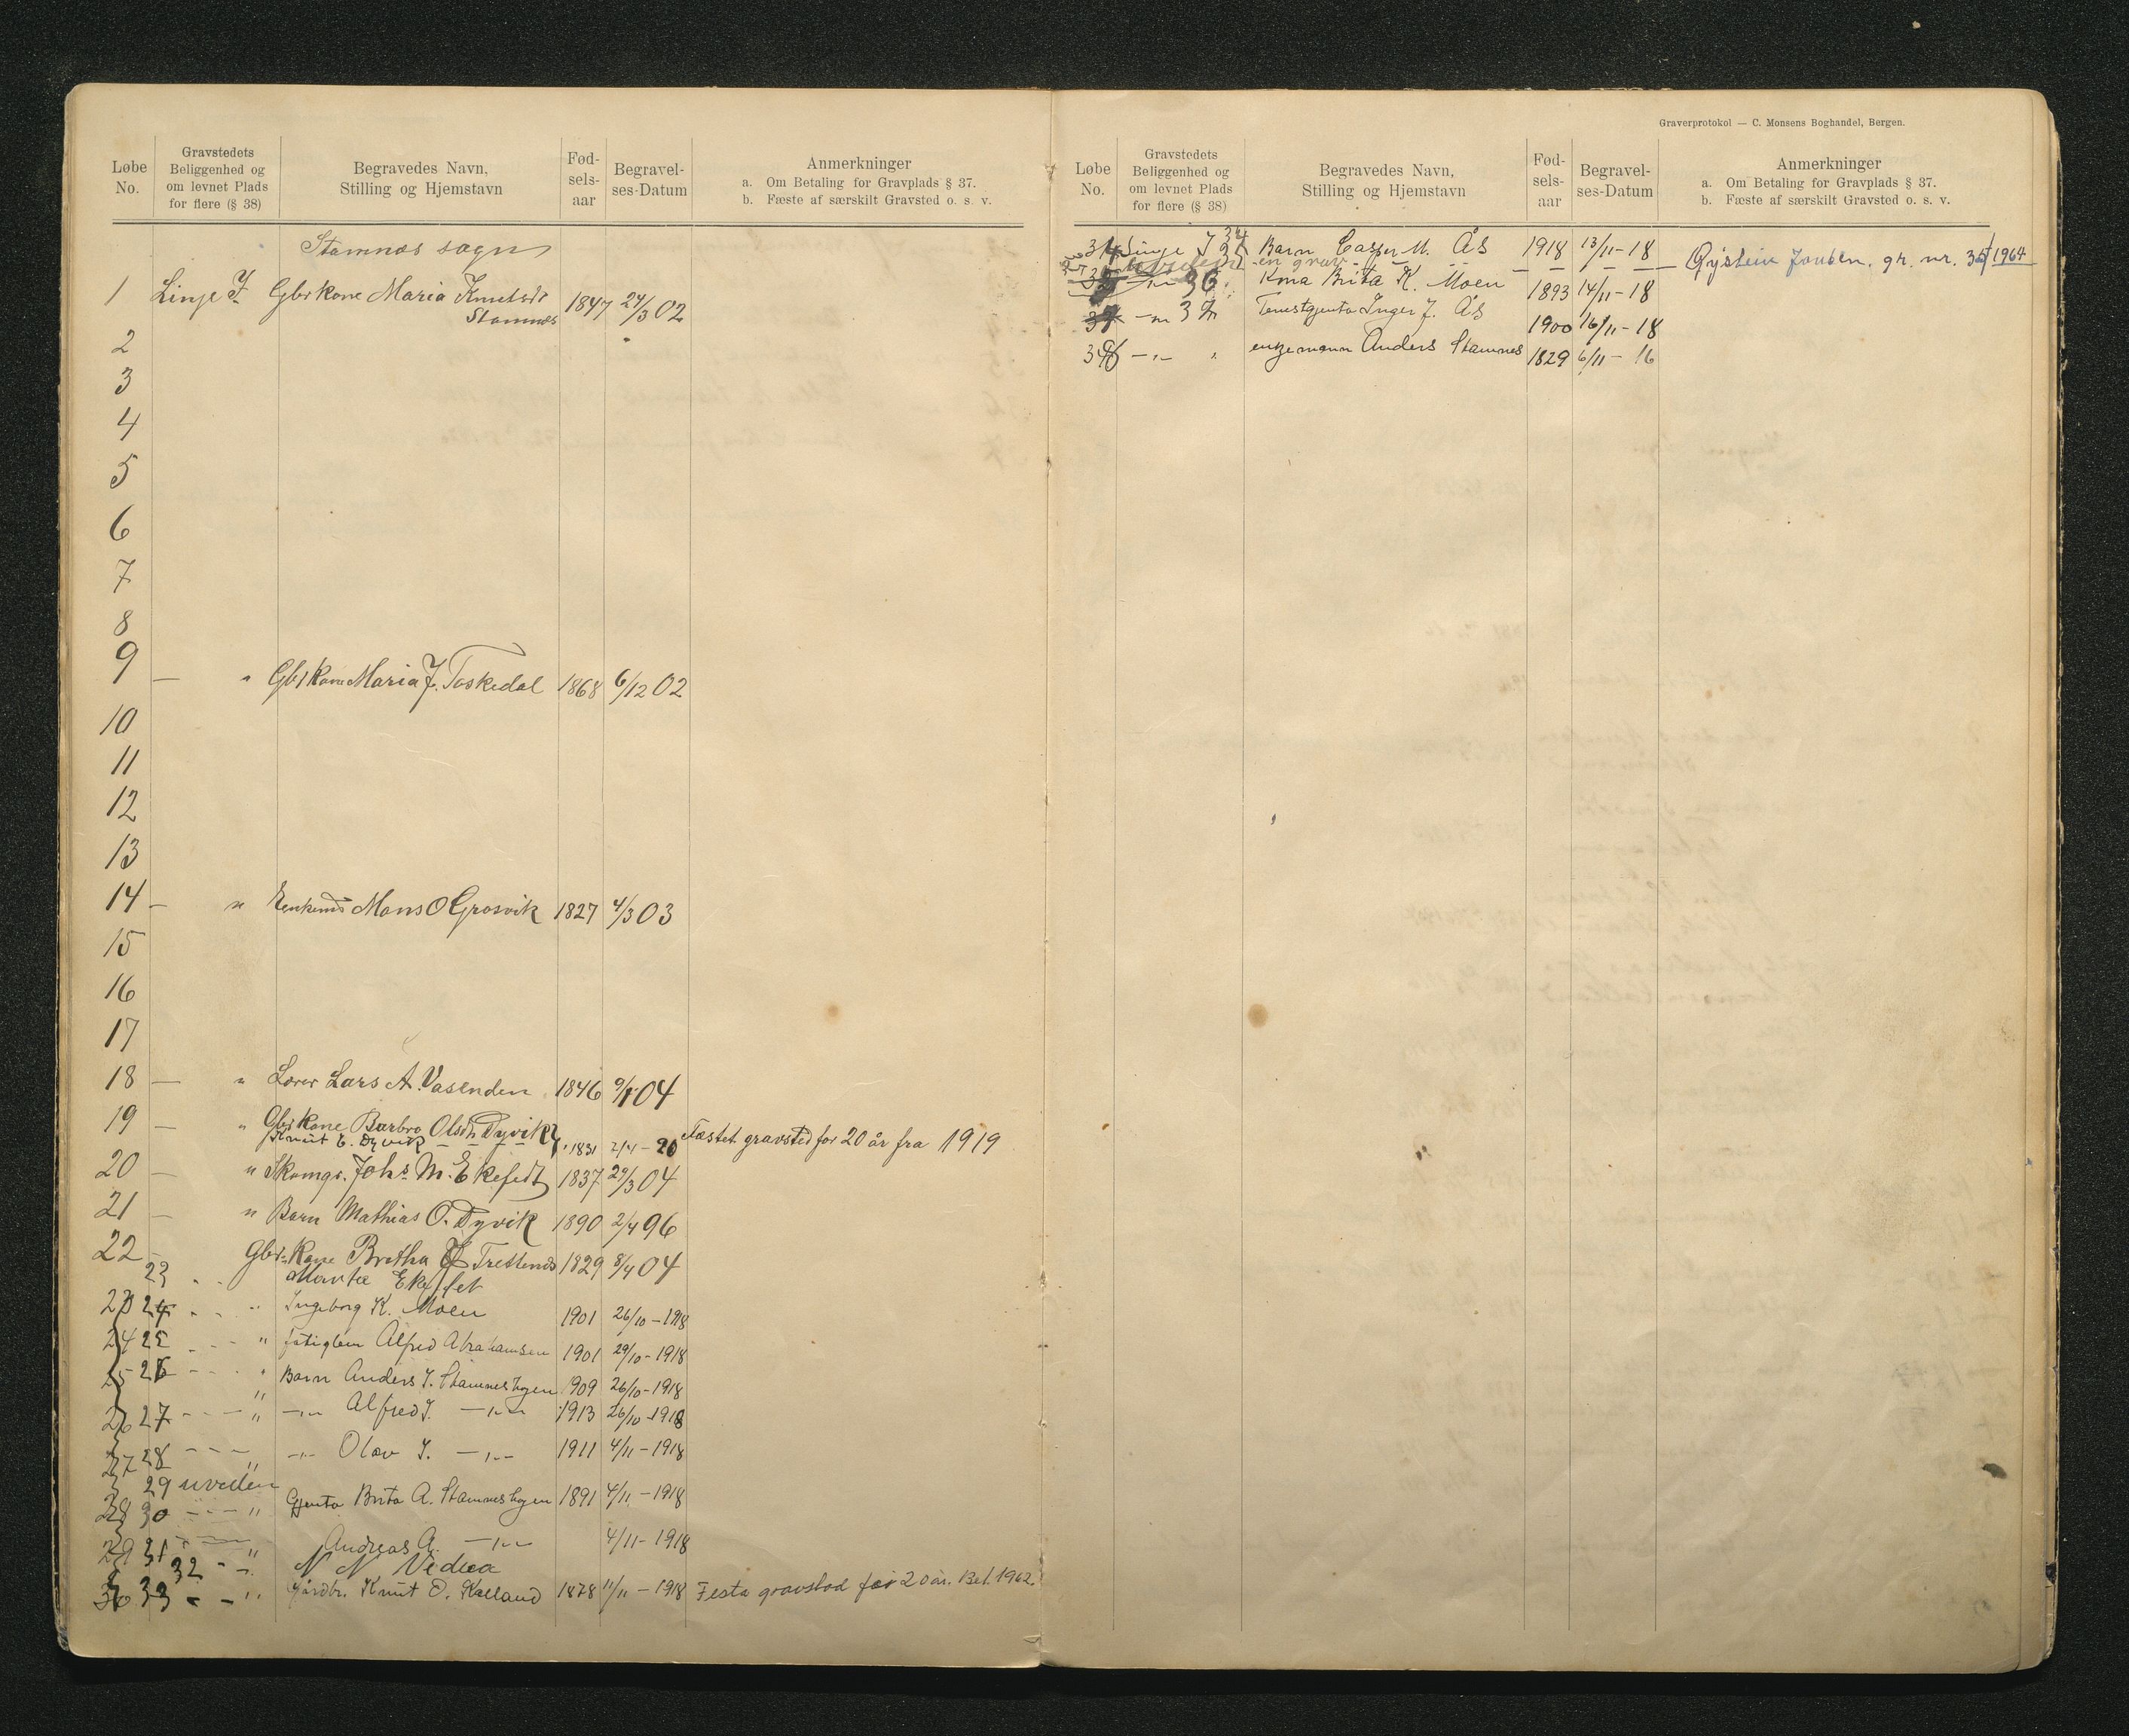 Løbe No.
Gravstedets Beliggenhed og om levnet Plads for flere (§ 38)
Begravedes Navn, Stilling og Hjemstavn
Fød-sels-aar
Begravel-ses-Datum
Anmerkninger
a. Om Betaling for Gravplads § 37.
b. Fæste af særskilt Gravsted o. s. v.
Stamnæs sogn
1 Linje I Gbr kone Maria Knutsdr 1847 24/3 02
Stamnæs
2
3
4
5
6
7
8
9 — " Gbr kone Maria J. Toskedal 1868 6/12 02
10
11
12
13
14 — " Mons O Grosvik 1827 4/3 03
15
16
17
18 — " Lærer Lars A. Vasenden 1846 04
19 — " Gbr kone Barbro Olsdr Dyvik
Knut B. Dyvik 1831 2/4 - 20 Fæstet gravsted for 20 år fra 1919
20 — " Skomgr. Johs M. Ekefedt 1837 29/3 04
21 — " Barn Mathias O. Dyvik 1890 2/4 96
22 — Gbr. Kone Bretha Trettenes 1829 8/4 04
23 Ekefet
24 " Ingeborg K. Moen 1901 26/10 - 1918
25 " Alfred Abrahamsen 1901 29/10 - 1918
26 " Barn Anders J. Stamneshagen 1909 26/10 - 1918
27 " —"— Alfred J. —"— 1913 26/10 - 1918
28 " —"— Olav J. —"— 1911 4/11 - 1918
29 uveden
30 " Gjenta Brita A. Stamneshagen 1891 4/11 - 1918
31 " Andreas A. —"— 4/11 - 1918
32 N N Vedaa
33 " Gårdbr. Knut O. Kalland 1878 11/11 - 1918 Festa gravstad for 20 år. Bet. 1962.
Graverprotokol — C. Monsens Boghandel, Bergen.
Løbe No.
Gravstedets Beliggenhed og om levnet Plads for flere (§ 38)
Begravedes Navn, Stilling og Hjemstavn
Fød-sels-aar
Begravel-ses-Datum
Anmerkninger
a. Om Betaling for Gravplads § 37.
b. Fæste af særskilt Gravsted o. s. v.
Linje I 34 Barn Casper M. Ås 1918 13/11 - 18
uveden en grav Øystein gr. nr. 35 1964
—"— 36 Kona Brita K. Moen 1893 14/11 - 18
—"— Tenestgjenta Inger J. Ås 1900 16/11 - 18
—"— " enkemann Anders Stamnes 1829 6/11 - 16